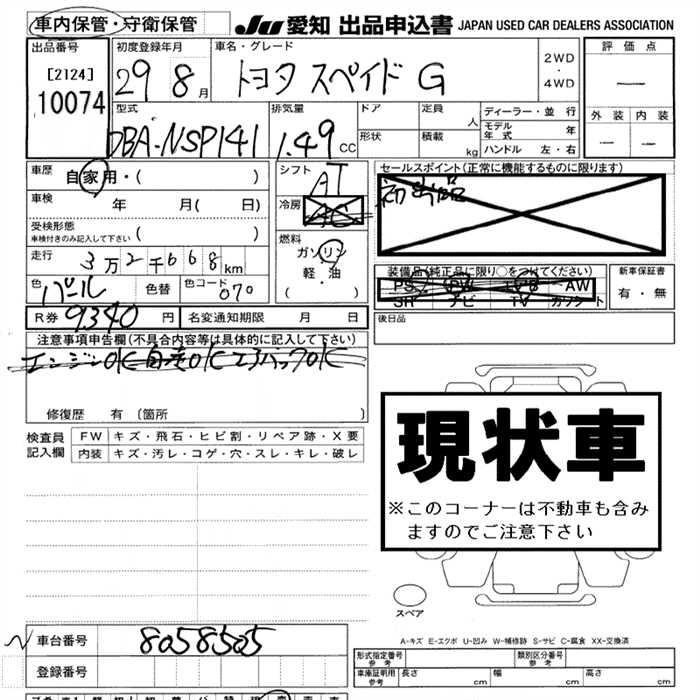 車内保管・守衛保管
JU 愛知 出品申込書 JAPAN USED CAR DEALERS ASSOCIATION
出品番号 初度登録年月 車名・グレード 評価点
[2124] 29 8月 トヨタ スペイド G 2WD ・ 4WD
10074 —
型式 排気量 ドア 定員 人 ディーラー・並行 外装 内装
DBA-NSP141 1.49 CC 形状 積載 kg モデル年式 年 — —
ハンドル 左・右
車歴 自家用・( ) シフト AT セールスポイント(正常に機能するものに限ります)
車検 年 月( 日) 冷房 AC
受検形態
車検付きのみ記入して下さい ( ) 燃料 ガソリン
走行 3万2千668km 軽・油 装備品(純正品に限り○をつけてください) 新車保証書
色 パール 色替 色コード 070 ( ) PS PW AW 有・無
SR ナビ TV カワシート
R券 9340円 名変通知期限 月 日 後日品
注意事項申告欄(不具合内容等は具体的に記入して下さい)
エンジンOK 自走OK エアバックOK
修復歴 有 〔箇所 〕
検査員 FW キズ・飛石・ヒビ割・リペア跡・X要
記入欄 内装 キズ・汚レ・コゲ・穴・スレ・キレ・破レ
現状車
※このコーナーは不動車も含み
ますのでご注意下さい
スペア
A-キズ E-エクボ U-凹み W-補修跡 S-サビ C-腐食 XX-交換済
車台番号 8058505
形式指定番号 参考 類別区分番号 参考
登録番号 車庫証明用 参考 長さ cm 幅 cm 高さ cm